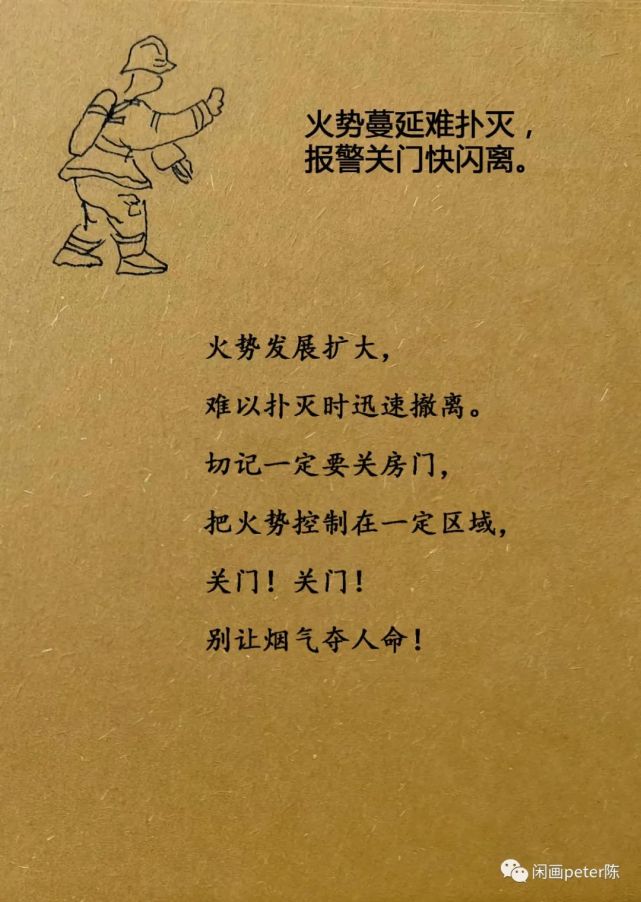 火势蔓延难扑灭，
报警关门快闪离。
火势发展扩大，
难以扑灭时迅速撤离。
切记一定要关房门，
把火势控制在一定区域，
关门！关门！
别让烟气夺人命！
闲画peter陈